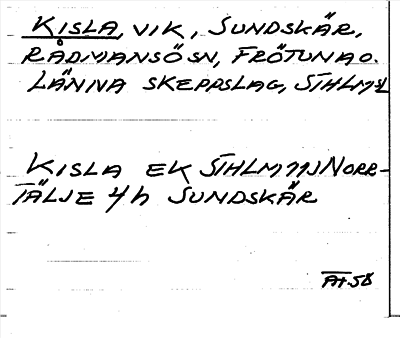 KISLA, VIK, SUNDSKÄR,
RÅDMANSÖ SN, FRÖTUNA O.
LÄNNA SKEPPSLAG, STHLMSL
KISLA EK STHLM 11J NORR-
TÄLJE 4h SUNDSKÄR
At 58